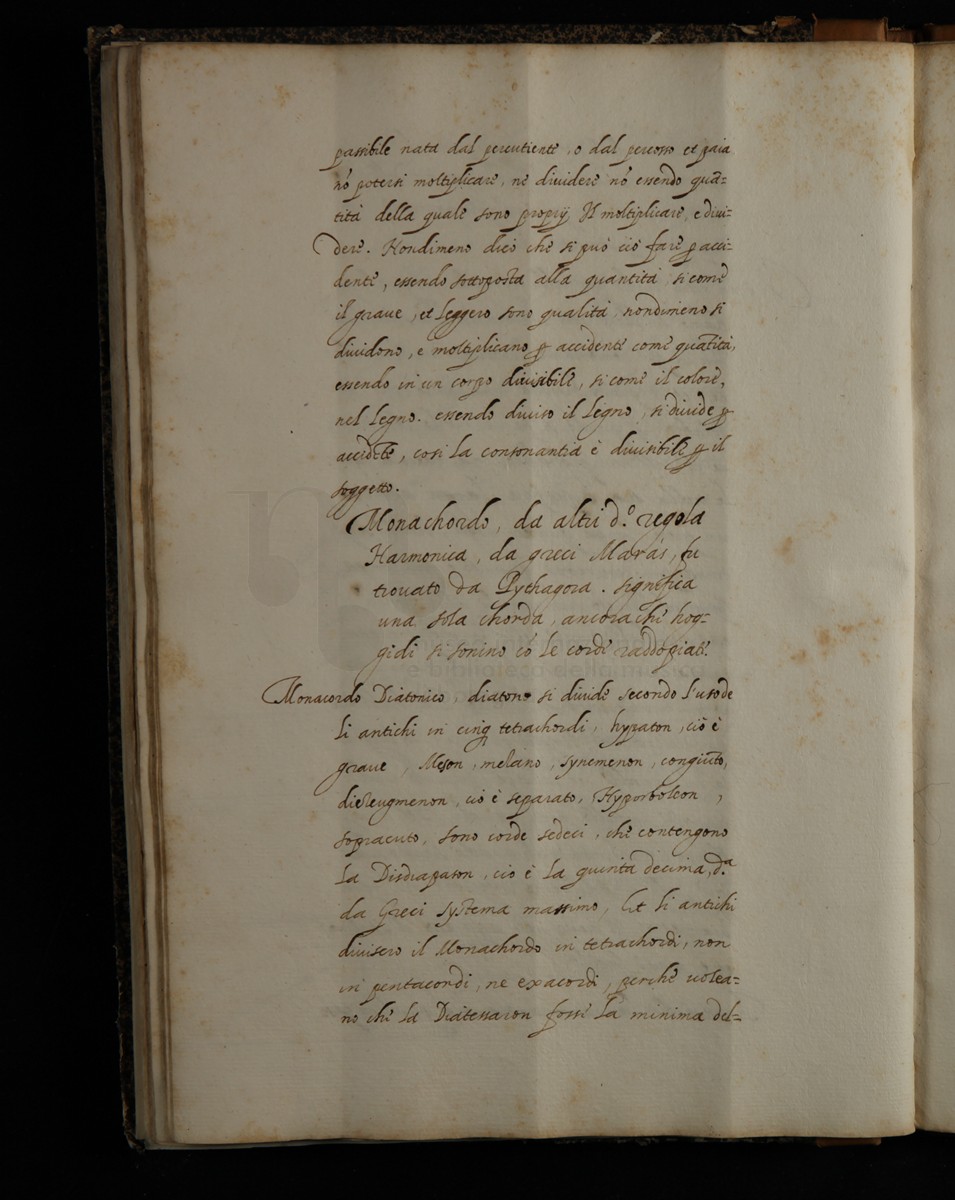 passibile nata dal percutiente, o dal percosso et paia
nō potersi moltiplicare, ne dividere nō essendo quā=
tità della quale sono proprij Il moltiplicare, e diui=
dere. Nondimeno dico che si può ciò fare ꝑ acci=
dente, essendo sottoposta alla quantità, si come
il graue, et leggero sono qualità, nondimeno si
diuidono, e moltiplicano ꝑ accidente come quātità,
essendo in un corpo diuisibile, si come il colore,
nel legno. essendo diuiso il legno, si diuide ꝑ
accidēte, cosi la consonantia è diuisibile ꝑ il
soggetto.
Monachordo, da altri d.º regola
Harmonica, da greci fu
trouato da Pythagora. significa
una sola chorda, ancora che hog=
gidi si sonino cō le corde raddopiate.
Monacordo Diatonico, diatono si diuide secondo l'uso de
li antichi in cinq tetrachordi, hypaton, ciò è
graue, Meson, melano, synemenon, congiūto,
diezeugmenon, ciò è separato, Hyporboleon,
sopracuto, sono corde sedeci, che contengono
la Disdiapason, ciò è la quinta decima, d.ª
da Greci systema massimo, Et li antichi
diuisero il Monachordo in tetrachordi, non
in pentacordi, ne exacordi, perche uolea=
no che la Diatessaron fosse la minima del=